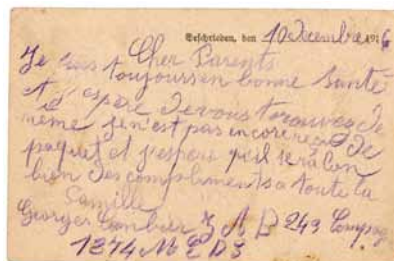 Geschrieben, den 10 Decembre 1916
Cher Parents
Je suis toujours en bonne Santé
et j'espère de vous trouvez de
même je n'est pas encore reçu de
paquet et j'espère qu'il sera bon
bien des compliments a toute la
famille
Georges Cambier Z A B 249 Compag
1874 M E D S